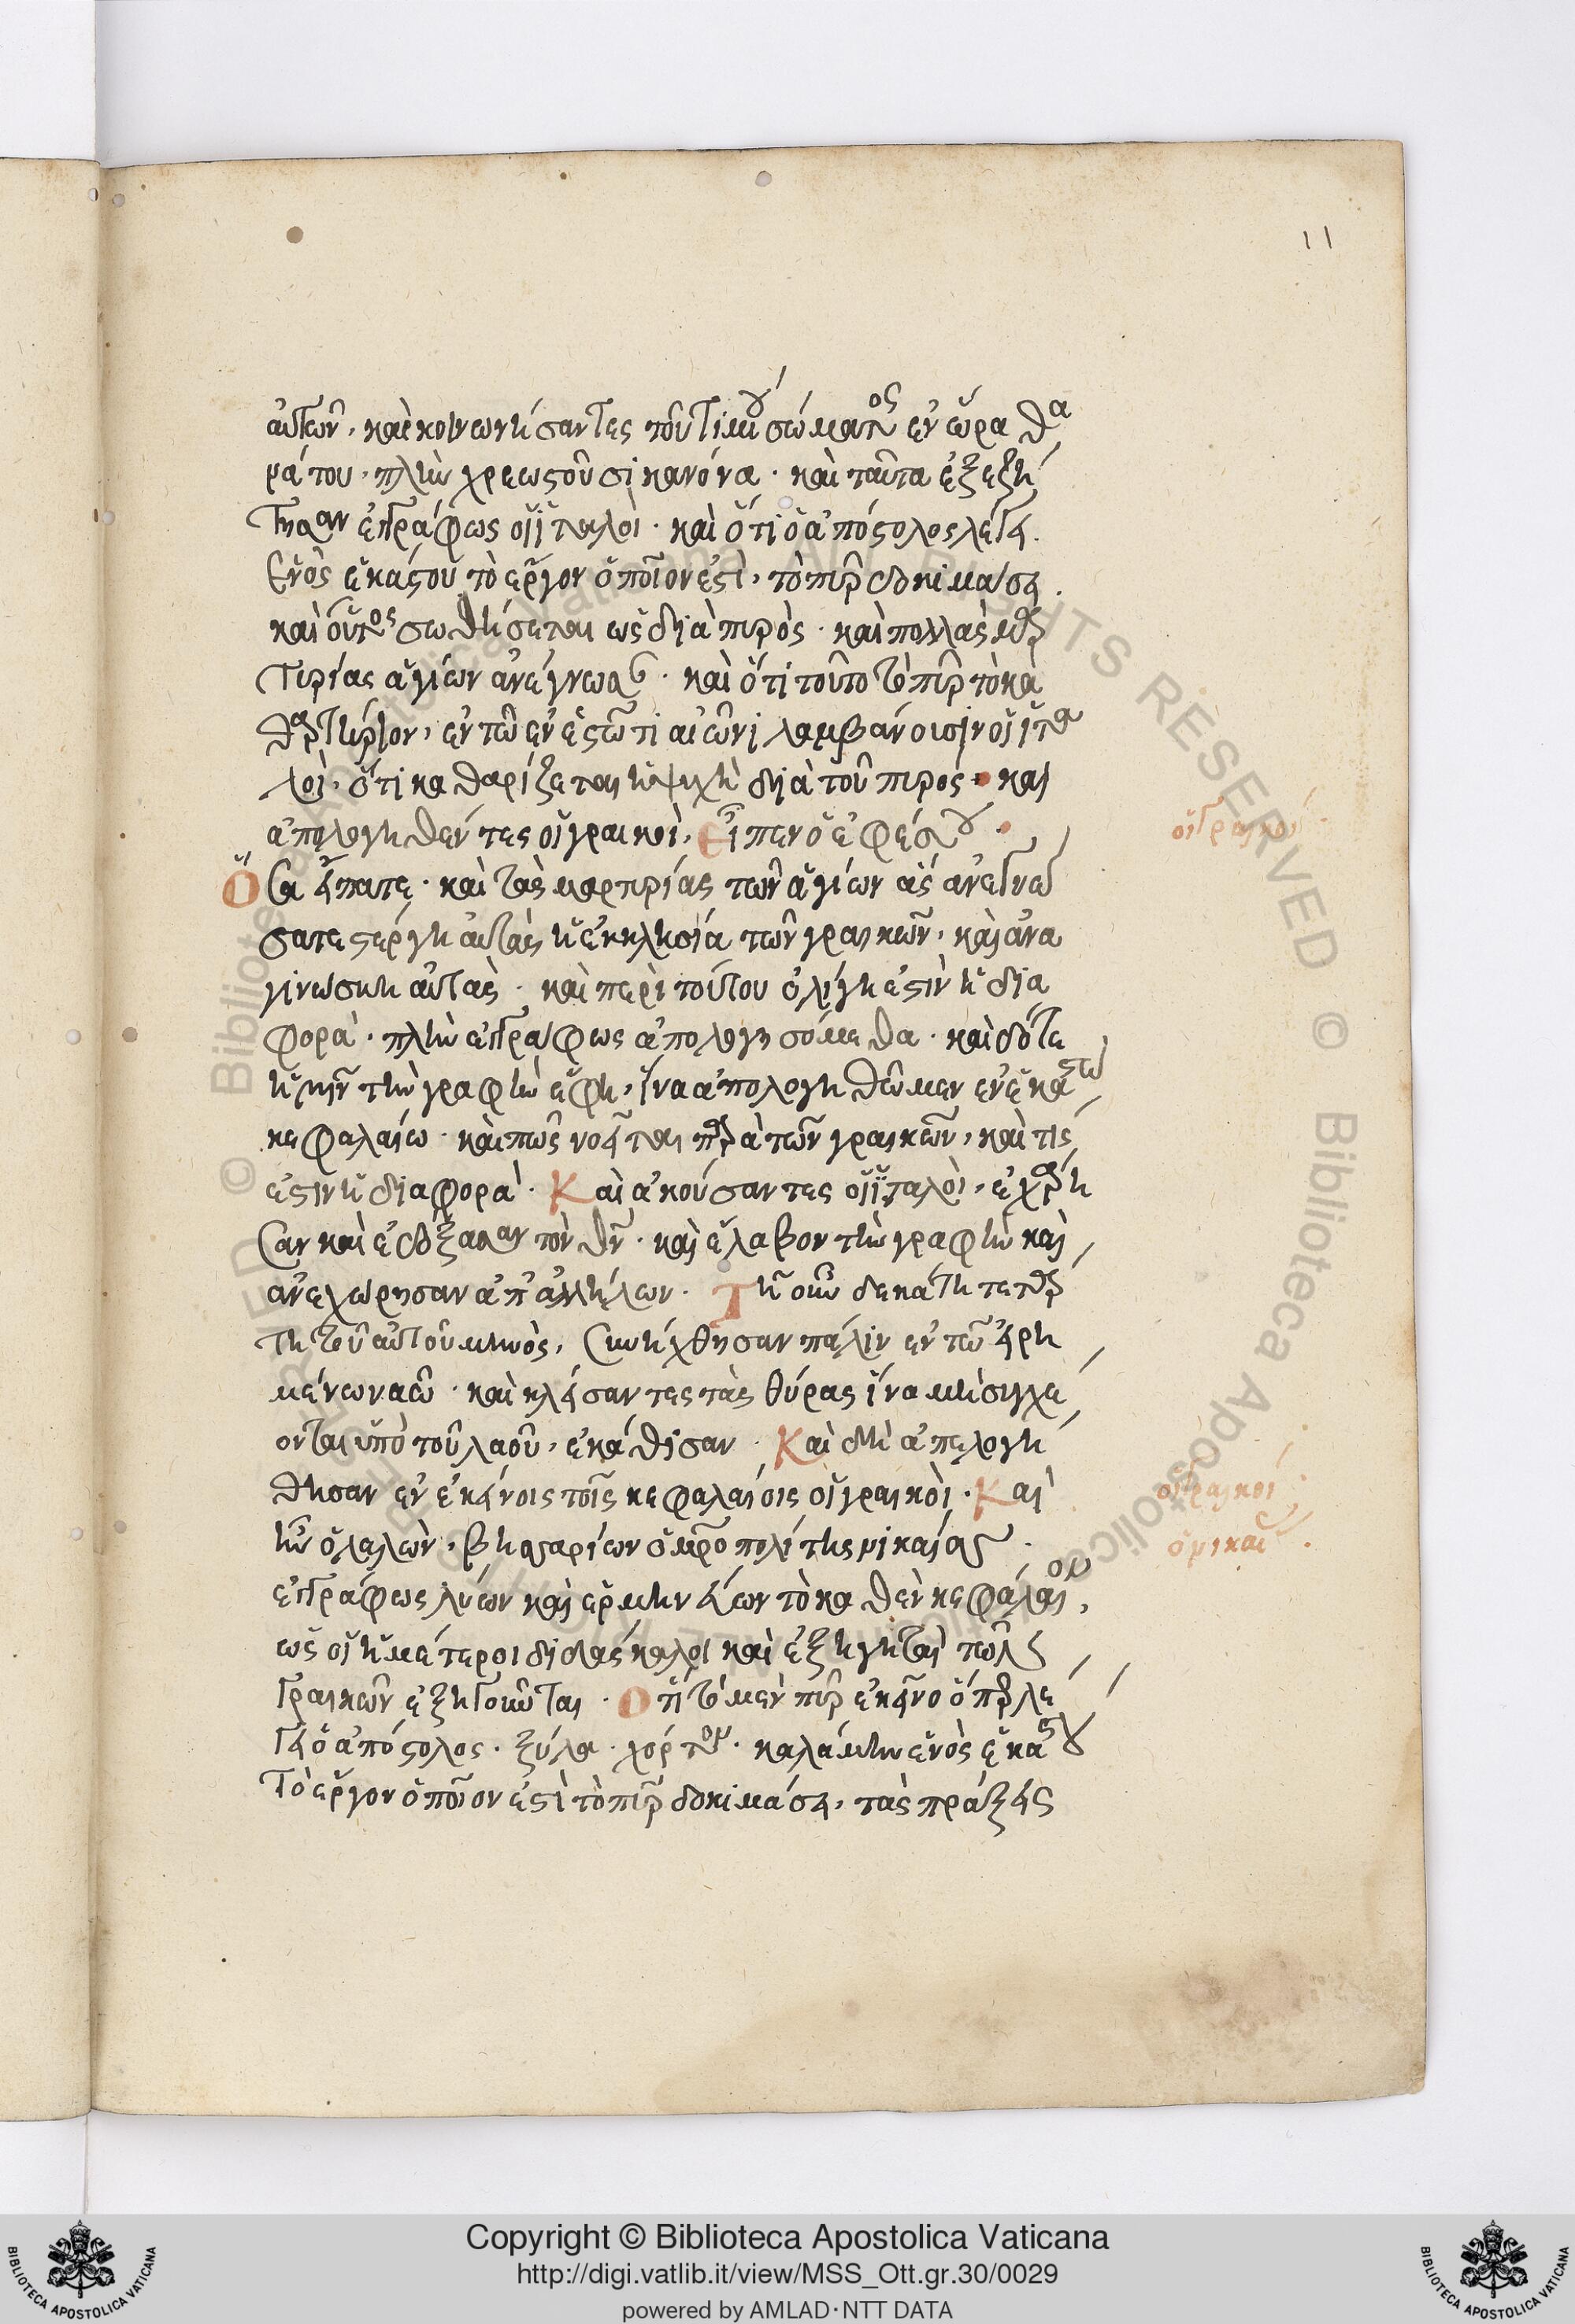 11
αὐτῶν, καὶ κοινωνήσαντες τοῦ τιμίου σώματος ἐν ὥρα θα
νάτου, πλὴν χρεωστοῦσι κανόνα· καὶ ταῦτα ἐξεζή
τησαν ἐγγράφως οἱ ἰταλοὶ· καὶ ὅτι ὁ ἀπόστολος λέγει.
Ενὸς ἑκάστου τὸ ἔργον ὁποῖον ἐστὶ, τὸ πῦρ δοκιμάσει.
καὶ οὗτος σωθήσεται ὡς διὰ πυρὸς· καὶ πολλὰς μαρ
τυρίας ἁγίων ἀνέγνωσαν· καὶ ὅτι τοῦτο τὸ πῦρ τὸ κα
θαρτήριον, ἐν τῶ ἐνεστῶτι αἰῶνι λαμβάνουσιν οἱ ἰτα
λοὶ, ὅτι καθαρίζεται ἡ ψυχὴ διὰ τοῦ πυρός· και
ἀπολογηθέντες οἱ γραικοὶ, Εἶπεν ὁ ἐφέσου·
οἱ γραικοί·
Ὅσα εἴπατε· καὶ τὰς μαρτυρίας τῶν ἁγίων ἃς ἀνεγνώ
σατε στέργη αὐτὰς ἡ ἐκκλησία τῶν γραικῶν, καὶ ἀνα
γινώσκη αὐτὰς· καὶ περὶ τούτου ὀλίγη ἐστὶν ἡ δια
φορὰ· πλὴν ἐγγράφως ἀπολογησόμεθα· καὶ δότε
ἡμῖν τὴν γραφὴν ἔφη, ἵνα ἀπολογηθῶμεν ἐν ἑκάστω
κεφαλαίω· καὶ πῶς νοεῖται παρὰ τῶν γραικῶν, καὶ τίς
ἐστιν ἡ διαφορά· Καὶ ἀκούσαντες οἱ ἰταλοὶ, ἐχάρη
σαν καὶ ἐδόξασαν τὸν θν· καὶ ἔλαβον τὴν γραφὴν καὶ
ἀνεχώρησαν ἀπ' ἀλλήλων· Τῆ οὖν δεκάτη τετάρ
τη τοῦ αὐτοῦ μηνὸς, συνήχθησαν πάλιν ἐν τῶ εἰρη
μένω ναῶ· καὶ κλείσαντες τὰς θύρας ἵνα μὴ συγχέ
ονται ὑπὸ τοῦ λαοῦ, ἐκάθισαν· Καὶ δὴ ἀπελογή
θησαν ἐν ἐκείνοις τοῖς κεφαλαίοις οἱ γραικοὶ· Καὶ
οἱ γραικοί
ἦν ὁ λαλῶν, βησαρίων ὁ μητροπολίτης νικαίας·
ὁ νικαίας·
ἐγγράφως λύων καὶ ἑρμηνεύων τὸ καθὲν κεφάλαιον,
ὡς οἱ ἡμέτεροι διδάσκαλοι καὶ ἐξηγηταὶ τῶν
Γραικῶν ἐξηγοῦνται· Ὅτι τὸ μὲν πῦρ ἐκεῖνο ὅπερ λέ
γει ὁ ἀπόστολος· ξύλα· χόρτον· καλάμην ἑνὸς ἑκάστου
Τὸ ἔργον ὁποῖον ἐστὶ τὸ πῦρ δοκιμάσει, τὰς πράξεις
Copyright © Biblioteca Apostolica Vaticana
http://digi.vatlib.it/view/MSS_Ott.gr.30/0029
powered by AMLAD·NTT DATA